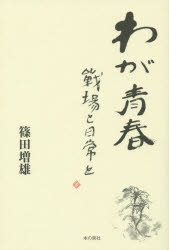 わが青春
戦場と日常と
篠田増雄
本の泉社